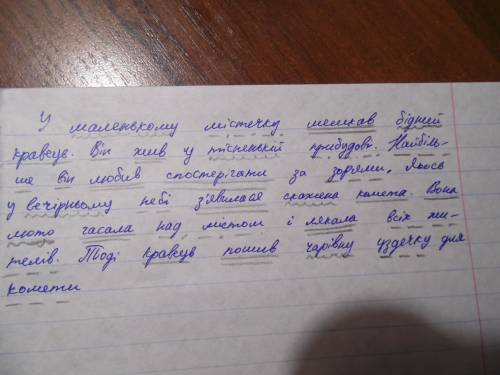 У маленькому містечку мешкав бідний
кравець. Він жив у тісненькій прибудові. Найбіль-
ше він любив спостерігати за зорями. Якось
у вечірньому небі з'явилася скажена комета. Вона
люто гасала над містом і лякала всіх жи-
телів. Тоді кравець пошив чарівну уздечку для
комети